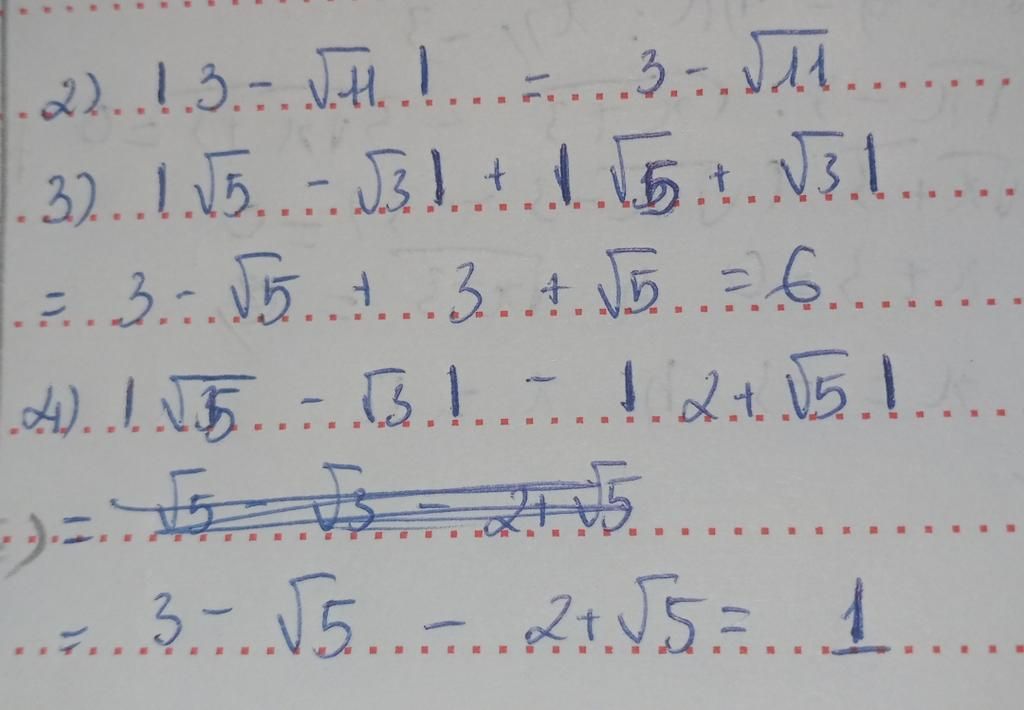 2) | 3 - √11 | = 3 - √11
3) | √5 - √3 | + | √5 + √3 |
= 3 - √5 + 3 + √5 = 6
4) | √5 - √3 | - | 2 + √5 |
= √5 - √3 - 2 + √5
= 3 - √5 - 2 + √5 = 1